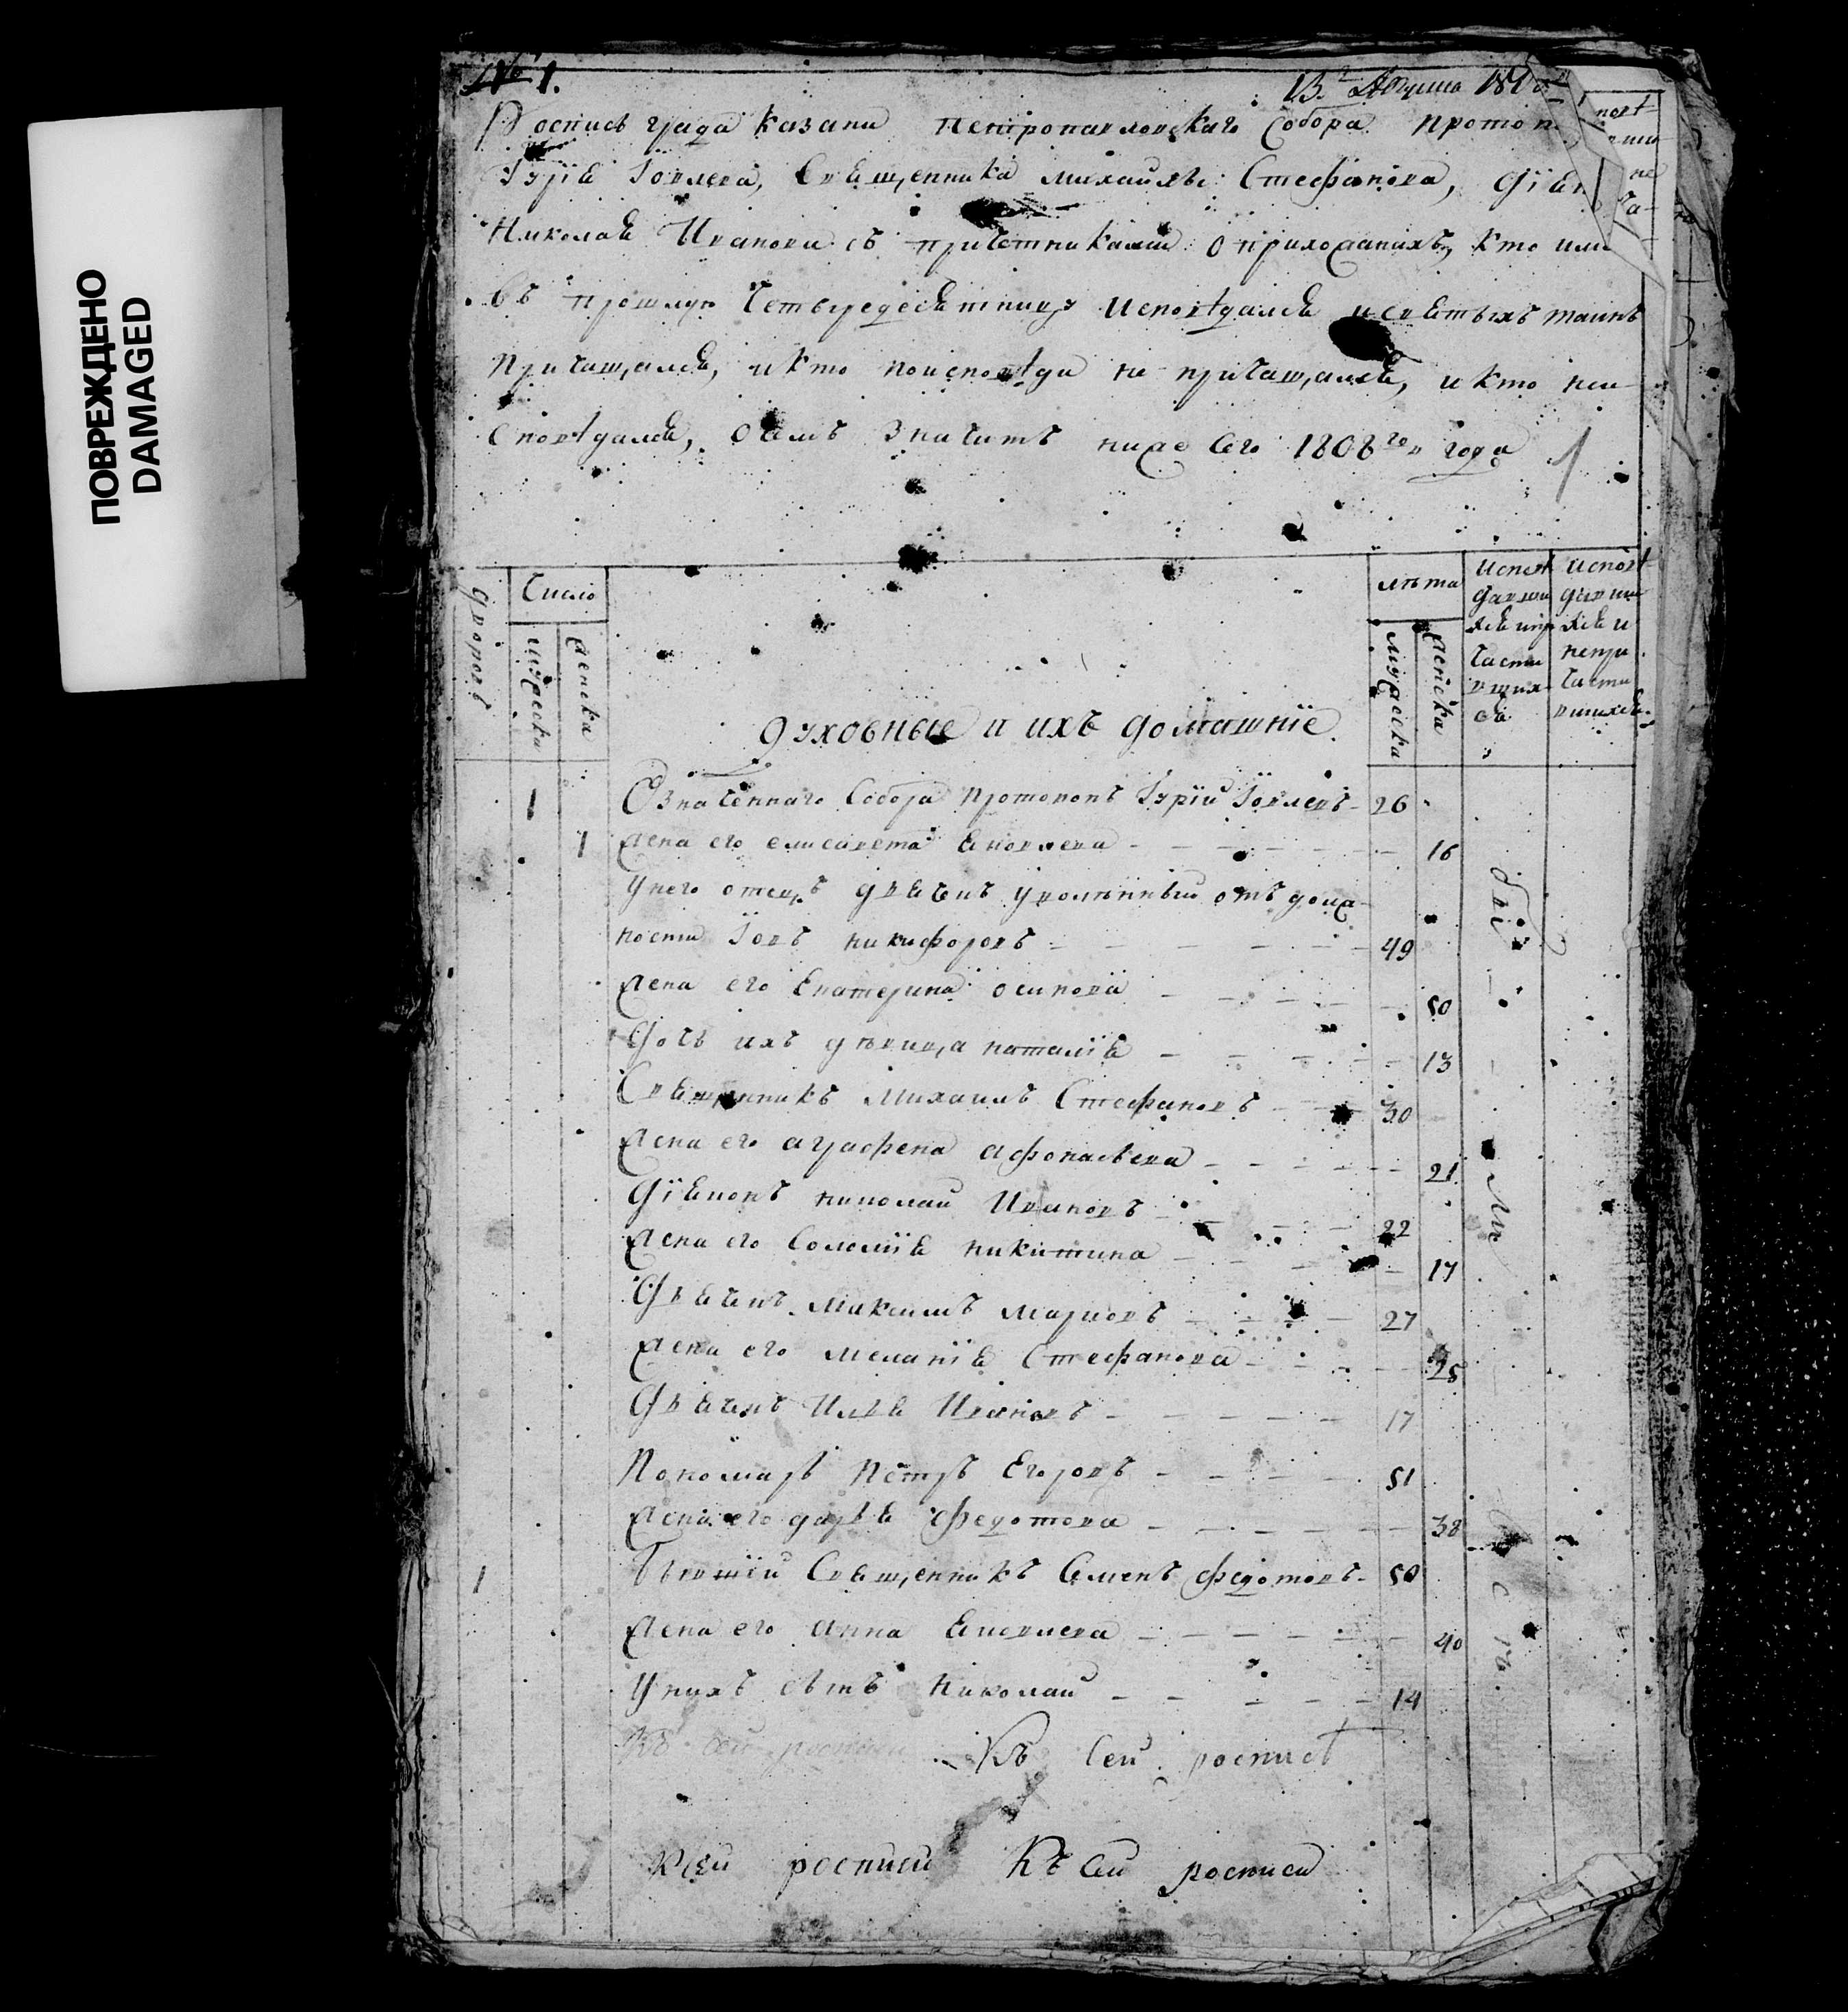 ПОВРЕЖДЕНО
DAMAGED
№ 1.
13.го 1808
Роспись града Казани Петропавловскаго Собора
Гурія Іовлева, Священника Михайлы Стефанова,
Николая Иванова съ причетниками о прихожанахъ, кто или
въ прошлую Четыредесятницу исповѣдался и святыхъ таинъ
причащался, и кто поисповѣди не причащался, и кто неи
сповѣдался, о чемъ значитъ ниже сего 1808го года
1
дворовъ
Число
мужеска
женска
лѣта
мужеска
женска
Исповѣ
давши
яся и пр
части
вшия
ся
Исповѣ
давши
яся и
непри
части
вшияся.
Духовные и ихъ домашніе.
1 Означеннаго Собора протопопъ Гурій Іовлевъ 26
1 Жена его елисавета Яковлева 16
У него отецъ дьячекъ уволенный отъ долж
ности Іовъ никифоровъ 49
Жена его Екатерина осипова 50
Дочь ихъ дѣвица наталія 13
Священникъ Михаилъ Стефановъ 30
Жена его аграфена афонасьева 21
Діяконъ николай Ивановъ 22
Жена его Соломія никитина 17
Дьячекъ Максимъ марковъ 27
Жена его меланія Стефанова 25
Дьячекъ Илья Ивановъ 17
Пономарь Петръ Егоровъ 51
Жена его дарья Федотова 38
1 Бывшій Священникъ Семенъ Федотовъ 50
Жена его анна Яковлева 40
У нихъ сынъ Николай 14
Къ сей росписи Къ Сей росписѣ
К сей росписи Къ сей росписи